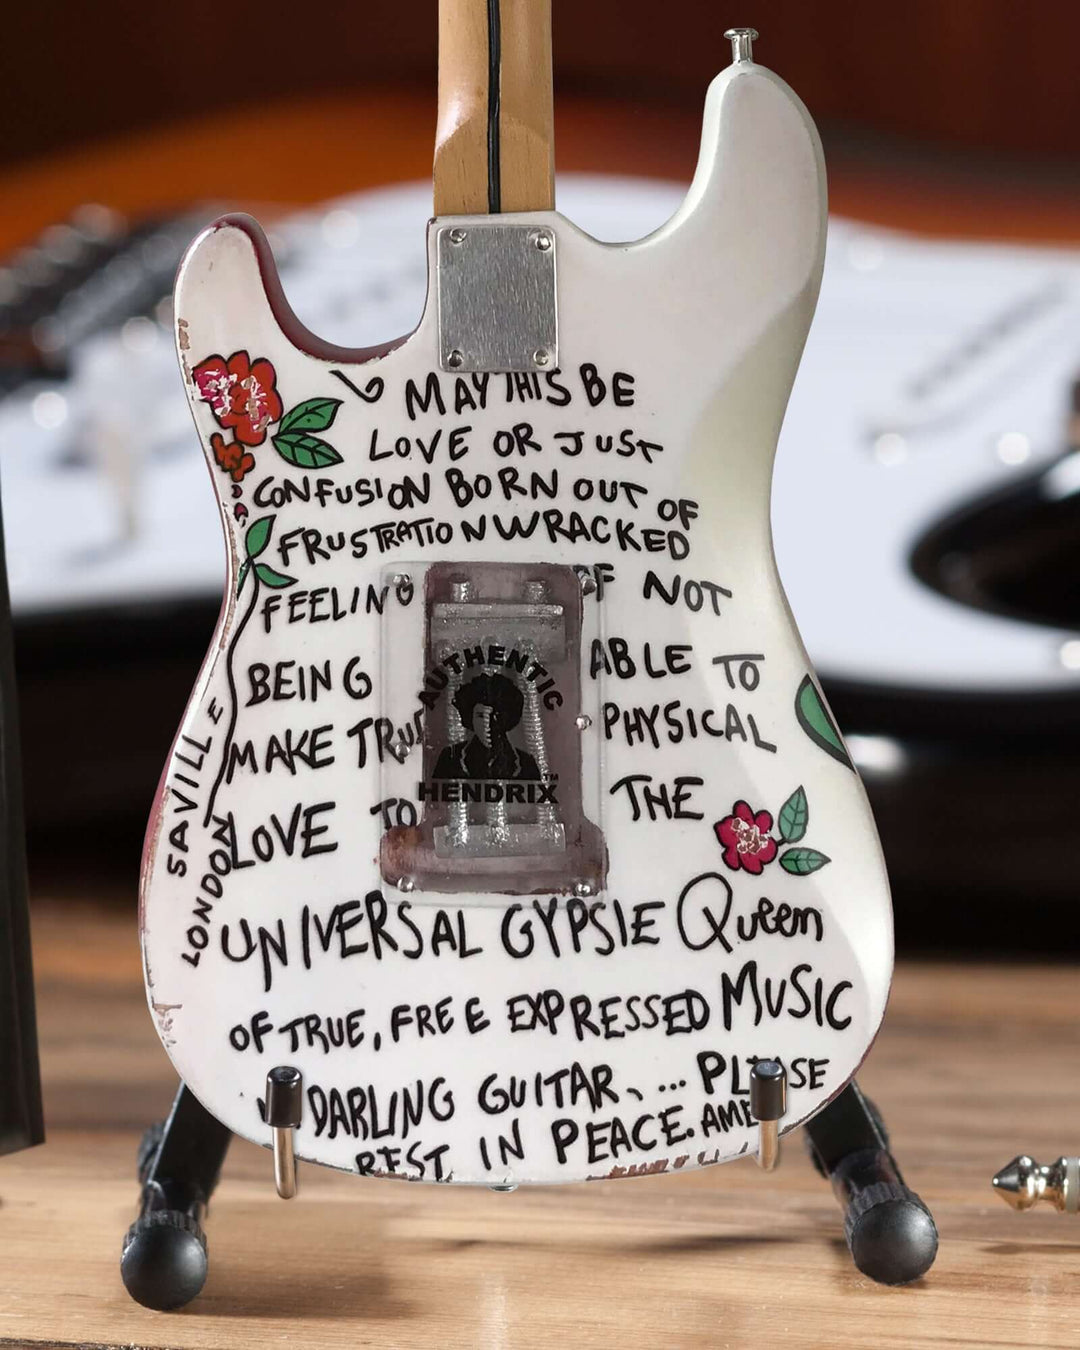 MAY THIS BE
LOVE OR JUST
CONFUSION BORN OUT OF
FRUSTRATION WRACKED
FEELING OF NOT
BEING ABLE TO
MAKE TRUE PHYSICAL
LOVE TO THE
UNIVERSAL GYPSIE Queen
OF TRUE, FREE EXPRESSED MUSIC
DARLING GUITAR, ... PLEASE
REST IN PEACE. AMEN
SAVILLE
LONDON
AUTHENTIC
HENDRIX™